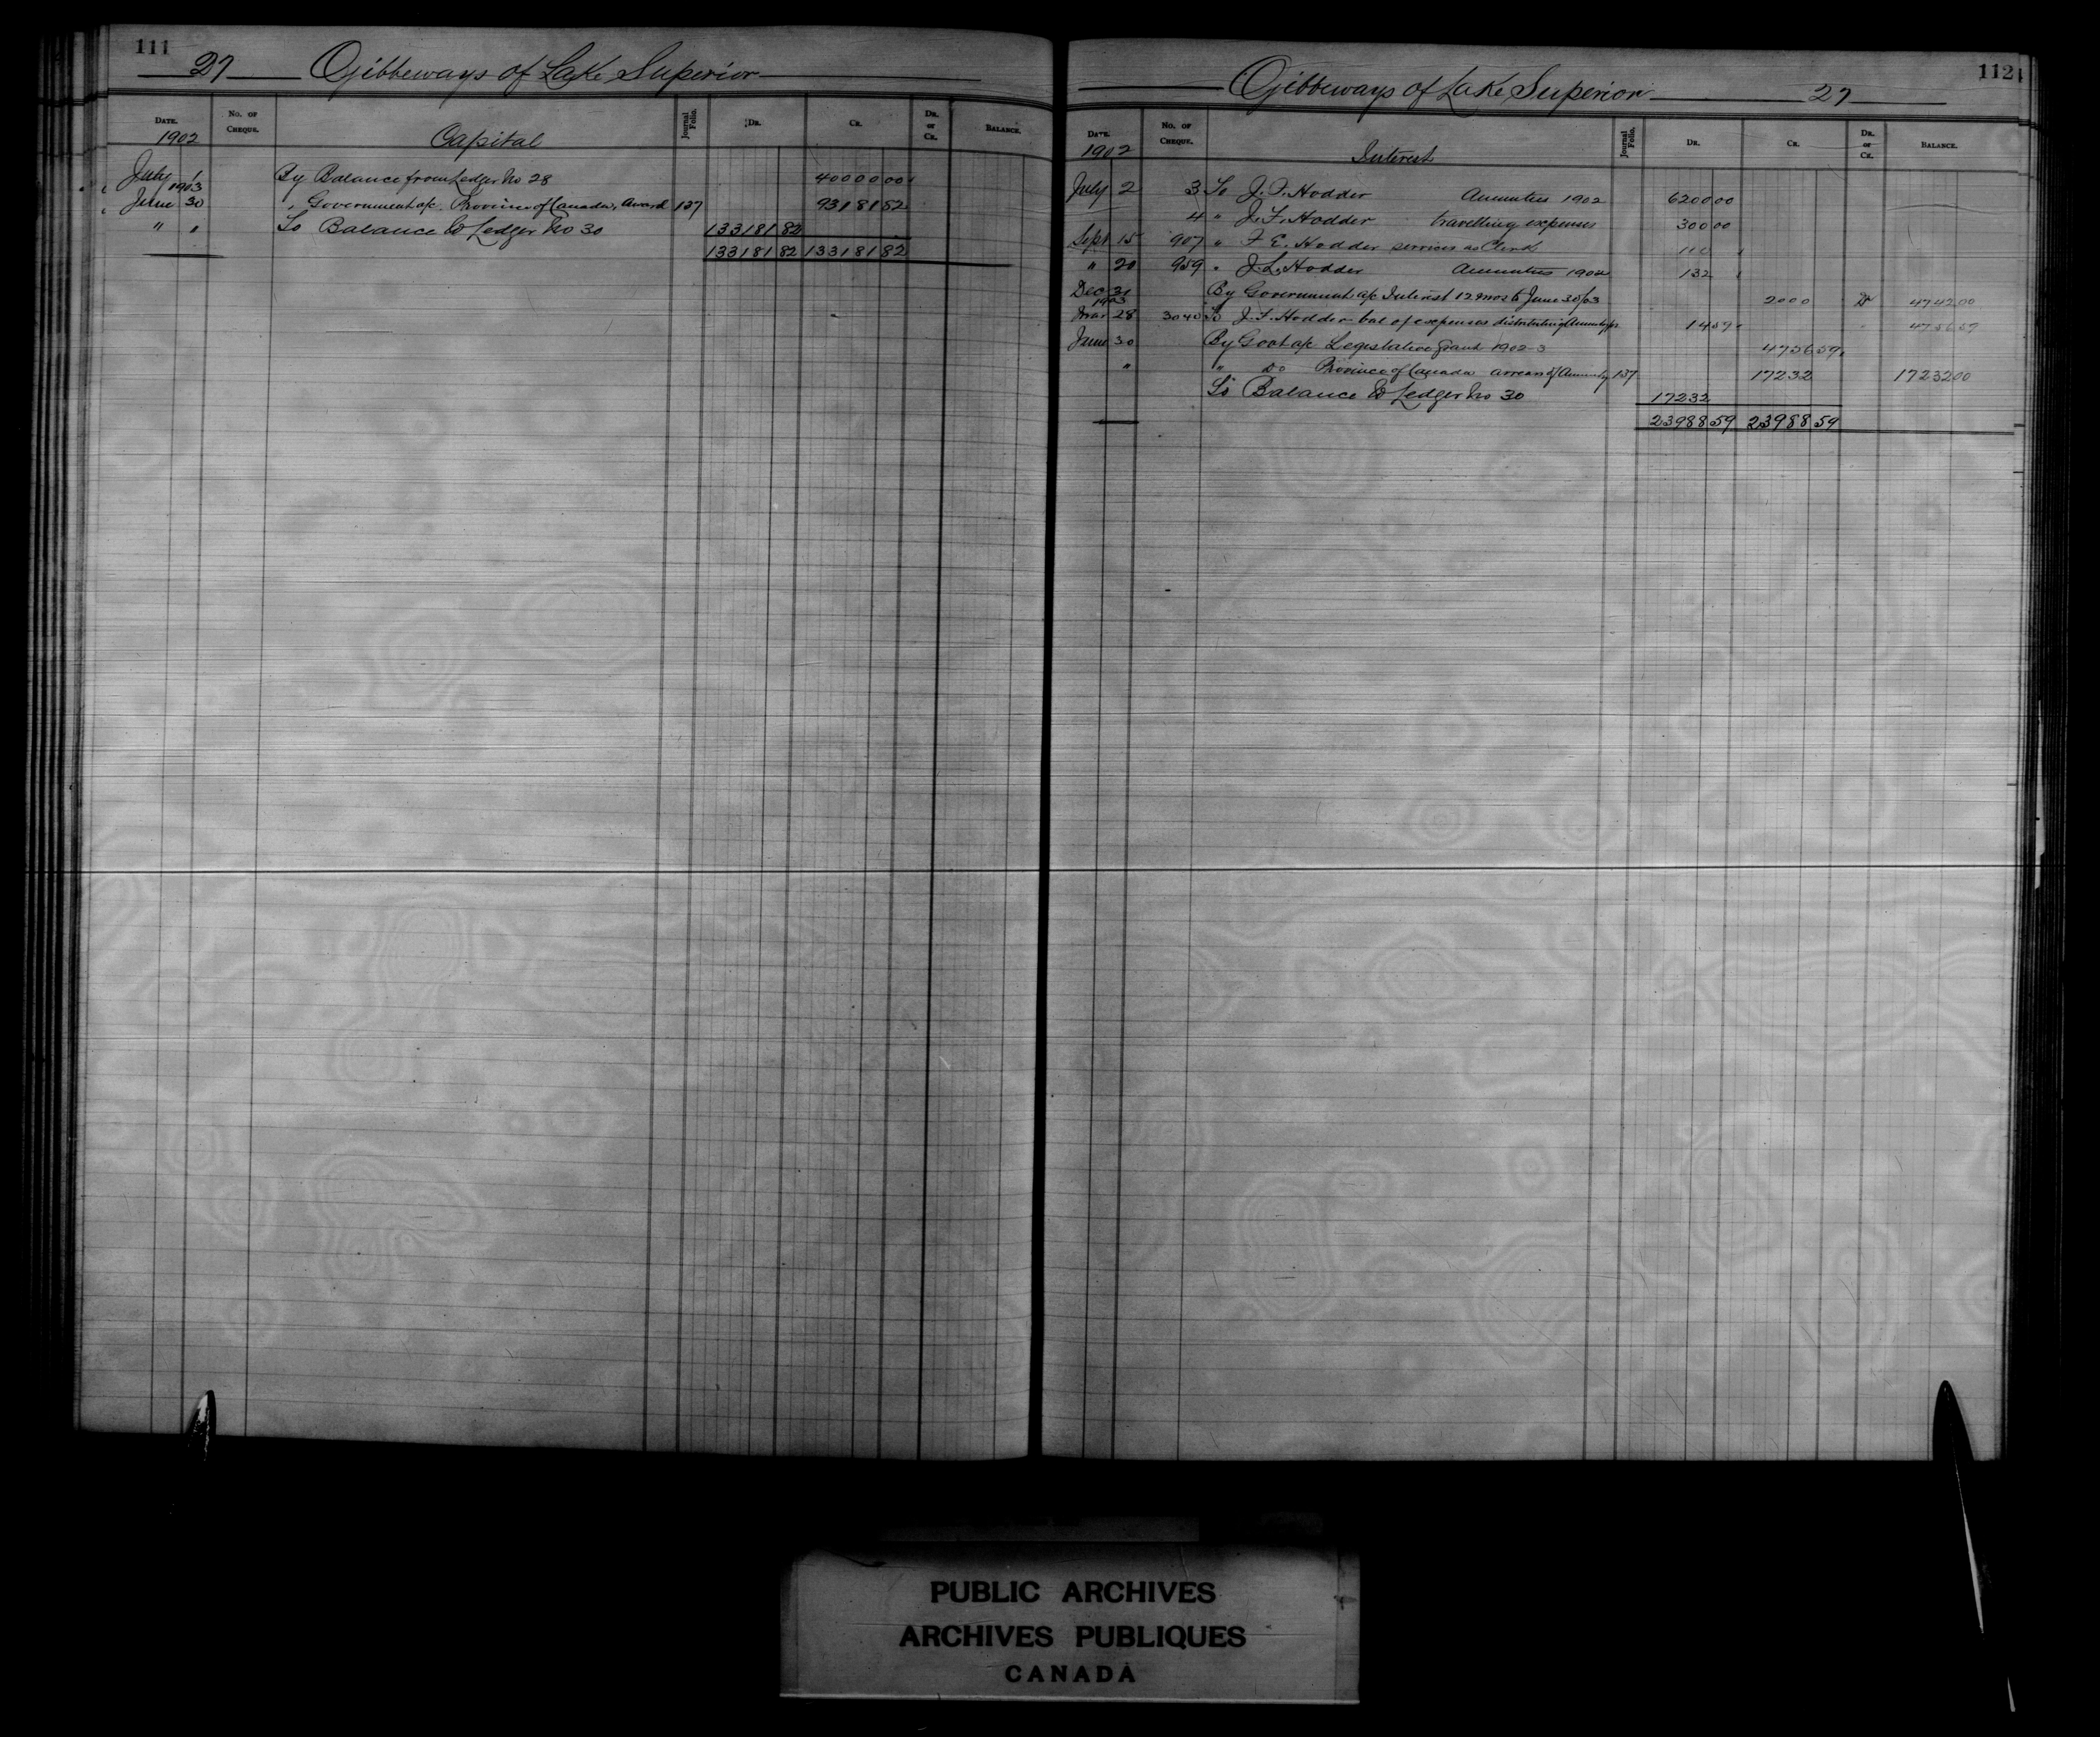 111
27 Ojibbeways of Lake Superior
DATE. No. OF CHEQUE. Journal Folio. DR. CR. DR. or CR. BALANCE.
1902 Capital
July 1 By Balance from Ledger No 28 40000 00
1903
June 30 " Government a/c. Province of Canada, Award 137 93181 82
" " To Balance to Ledger No 30 133181 82
133181 82 133181 82
112
Ojibbeways of Lake Superior 27
DATE. No. OF CHEQUE. Journal Folio. DR. CR. DR. or CR. BALANCE.
1902 Interest
July 2 3 To J. F. Hodder Annuities 1902 6200 00
4 " J. F. Hodder travelling expenses 300 00
Sept 15 907 " F. E. Hodder services as Clerk 110 "
" 20 959 " Hodder Annuities 1902 132 "
Dec 31 By Government a/c Interest 12 mos to June 30/03 2000 Dr 4742 00
1903
Mar 28 3040 To J. F. Hodder bal of expenses distributing 14 59 " 4756 59
June 30 By Govt a/c Legislative Grant 1902-3 4756 59
" " Do Province of Canada arrears of Annuity 137 17232 17232 00
To Balance to Ledger No 30 17232
23988 59 23988 59
PUBLIC ARCHIVES
ARCHIVES PUBLIQUES
CANADA